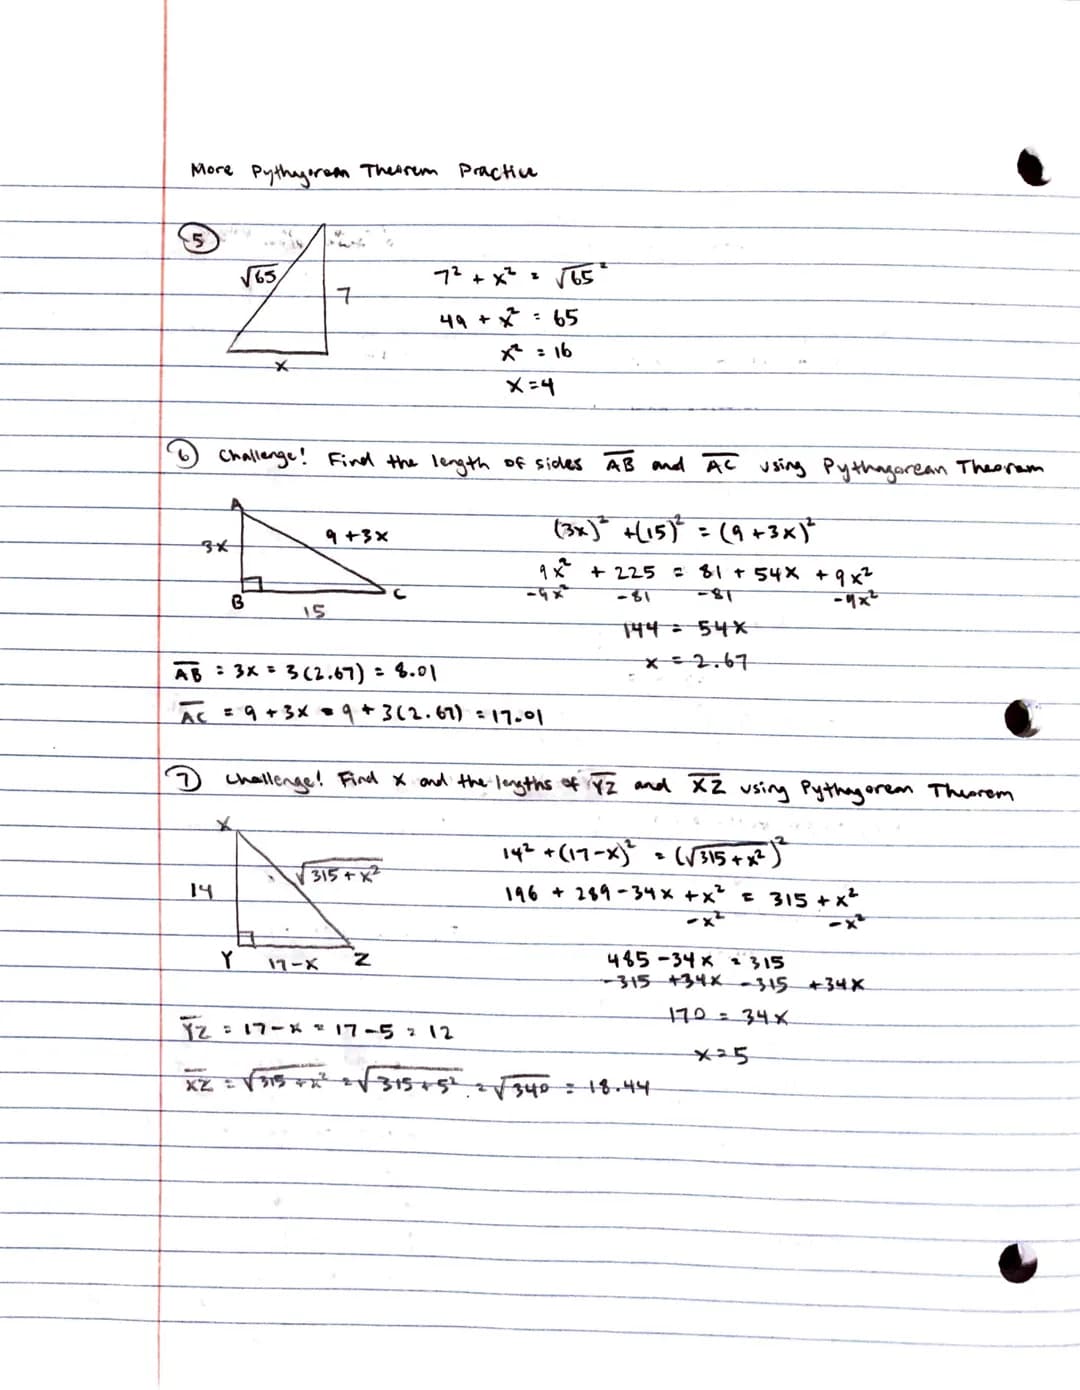 More Pythagorean Theorem Practice
5
√65
7
x
7² + x² = √65²
49 + x² = 65
x² = 16
x=4
6 Challenge! Find the length of sides AB and AC using Pythagorean Theorem
A
3x
9+3x
B
15
C
(3x)² +(15)² = (9+3x)²
9x² + 225 = 81 + 54x + 9x²
-9x² -81 -81 -9x²
144 = 54x
x = 2.67
AB = 3x = 3(2.67) = 8.01
AC = 9+3x = 9+3(2.67) = 17.01
7 Challenge! Find x and the lengths of YZ and XZ using Pythagorean Theorem
X
14
√315+x²
Y
17-x
Z
14² +(17-x)² = (√315+x²)²
196 + 289-34x +x² = 315 +x²
-x² -x²
485 -34x = 315
-315 +34x -315 +34x
170 = 34x
x=5
YZ = 17-x = 17-5 = 12
XZ = √315+x² = √315+5² = √340 = 18.44